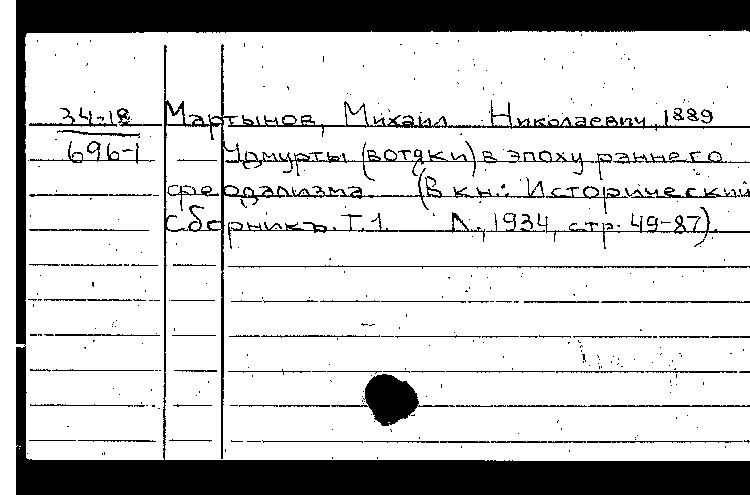 34-18 Мартынов, Михаил Николаевич, 1889
696-1 Удмурты (вотяки) в эпоху раннего
феодализма. (В кн.: Исторический
сборникъ. Т. 1. Л., 1934, стр. 49-87).